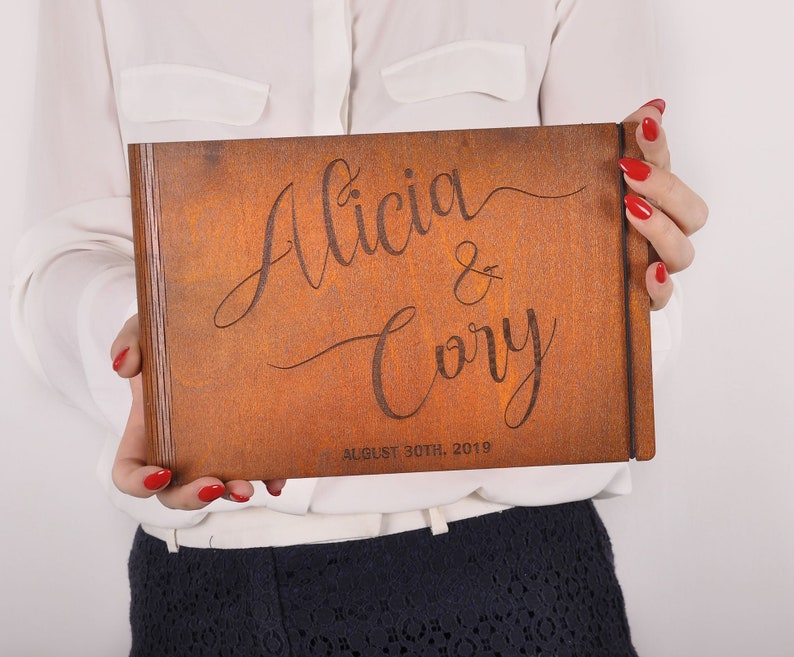 Alicia
&
Cory
AUGUST 30TH, 2019